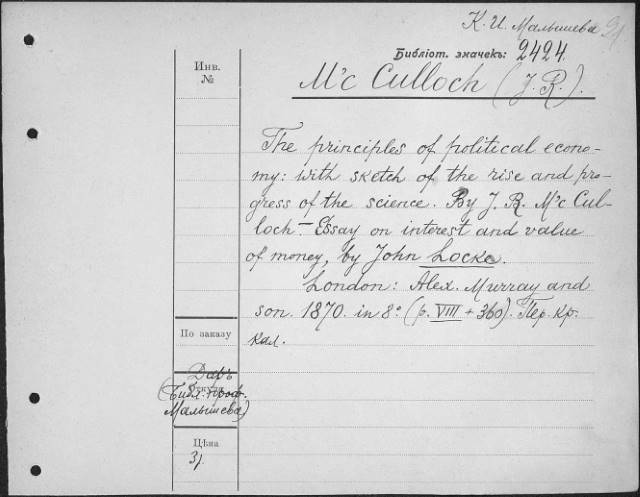 К. И. Малышева
Библіот. значекъ: 2424
Инв.
№
M'c Culloch (J. R.).
The principles of political econo-
my: with sketch of the rise and pro-
gress of the science. By J. R. M'c Cul-
loch – Essay on interest and value
of money, by John Locke.
London: Alex. Murray and
son. 1870. in 8° (p. VIII + 360). Пер. кр.
кал.
По заказу
Даръ
Откуда
(Библ. проф.
Малышева)
Цѣна